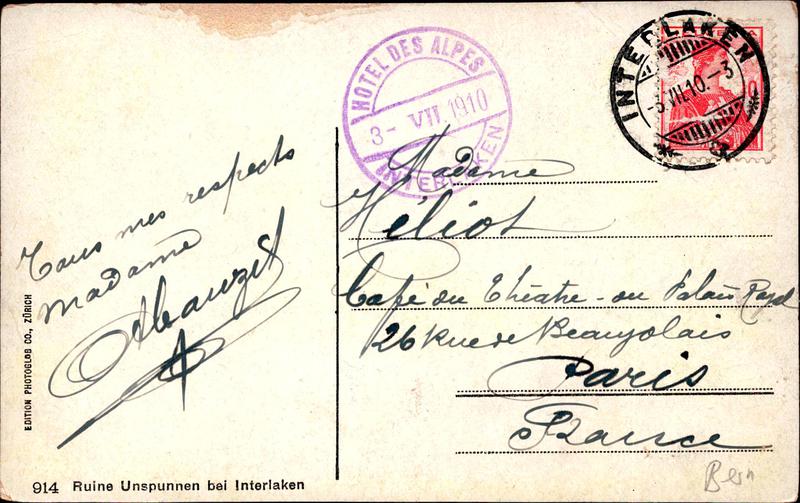 HOTEL DES ALPES
3 - VII. 1910
INTERLAKEN
INTERLAKEN
-3.VII.10.-3
3
Tous mes respects
Madame
Madame
Héliot
Café du Théatre - du Palais Royal
26 Rue de Beaujolais
Paris
France
Bern
EDITION PHOTOGLOB CO., ZÜRICH
914 Ruine Unspunnen bei Interlaken